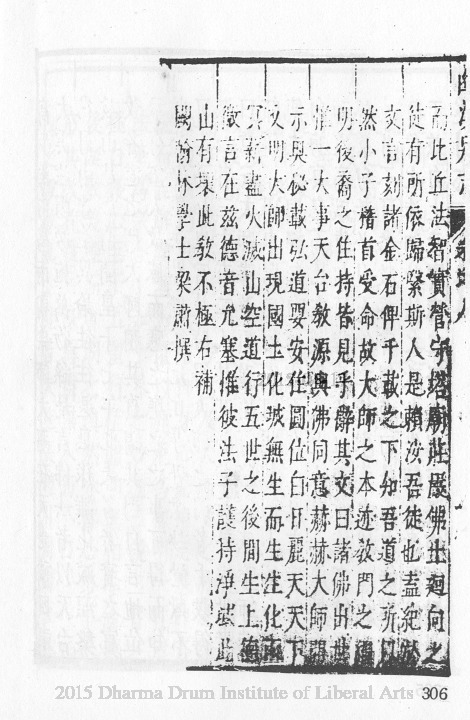 而此丘法智實營守塔廟莊嚴佛土迴向之
徒有所依歸繄斯人是賴汝吾徒也蓋紀於
文言刻諸金石俾千載之下知吾道之所以
然小子稽首受命故大師之本迹教門之
明後裔之住持皆見乎辭其文曰諸佛出世
惟一大事天台教源與佛同意赫赫大師
示與秘載弘道嬰安住圓位白日麗天天下
文明大師出現國土化城無生而生生化
薪盡火滅山空道行五世之後間生上德
微言在茲德音允塞惟彼法子護持淨域此
山有壞此教不極右補
闕翰林學士梁肅撰
2015 Dharma Drum Institute of Liberal Arts
306